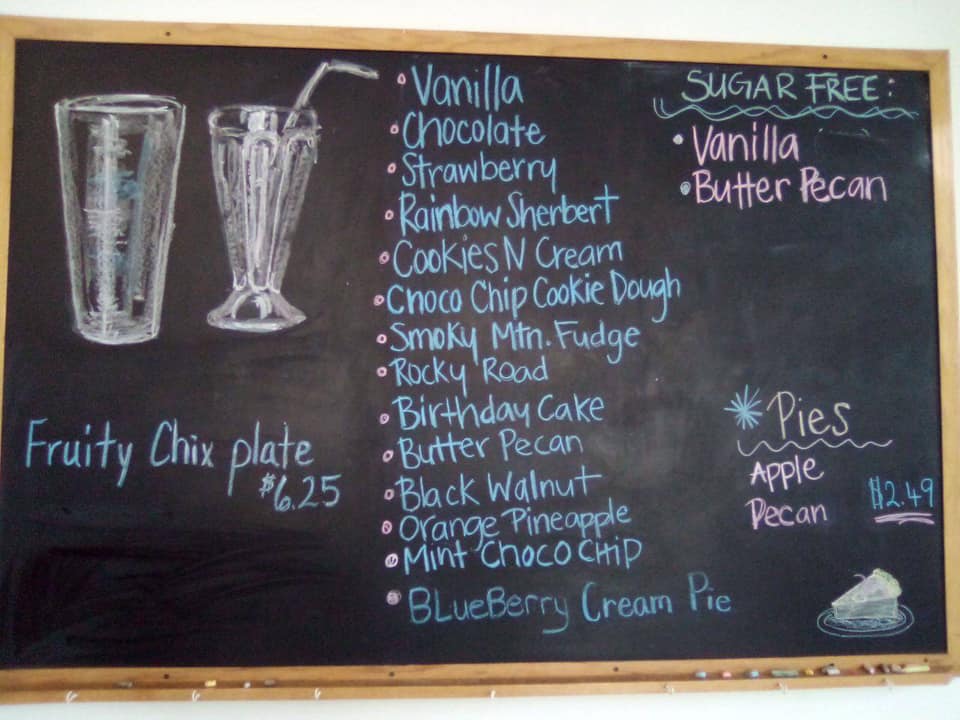 Vanilla
Chocolate
Strawberry
Rainbow Sherbert
Cookies N Cream
Choco Chip Cookie Dough
Smoky Mtn. Fudge
Rocky Road
Birthday Cake
Butter Pecan
Black Walnut
Orange Pineapple
Mint Choco Chip
BLueBerry Cream Pie
SUGAR FREE:
Vanilla
Butter Pecan
Fruity Chix plate
$6.25
Pies
Apple
Pecan
$2.49